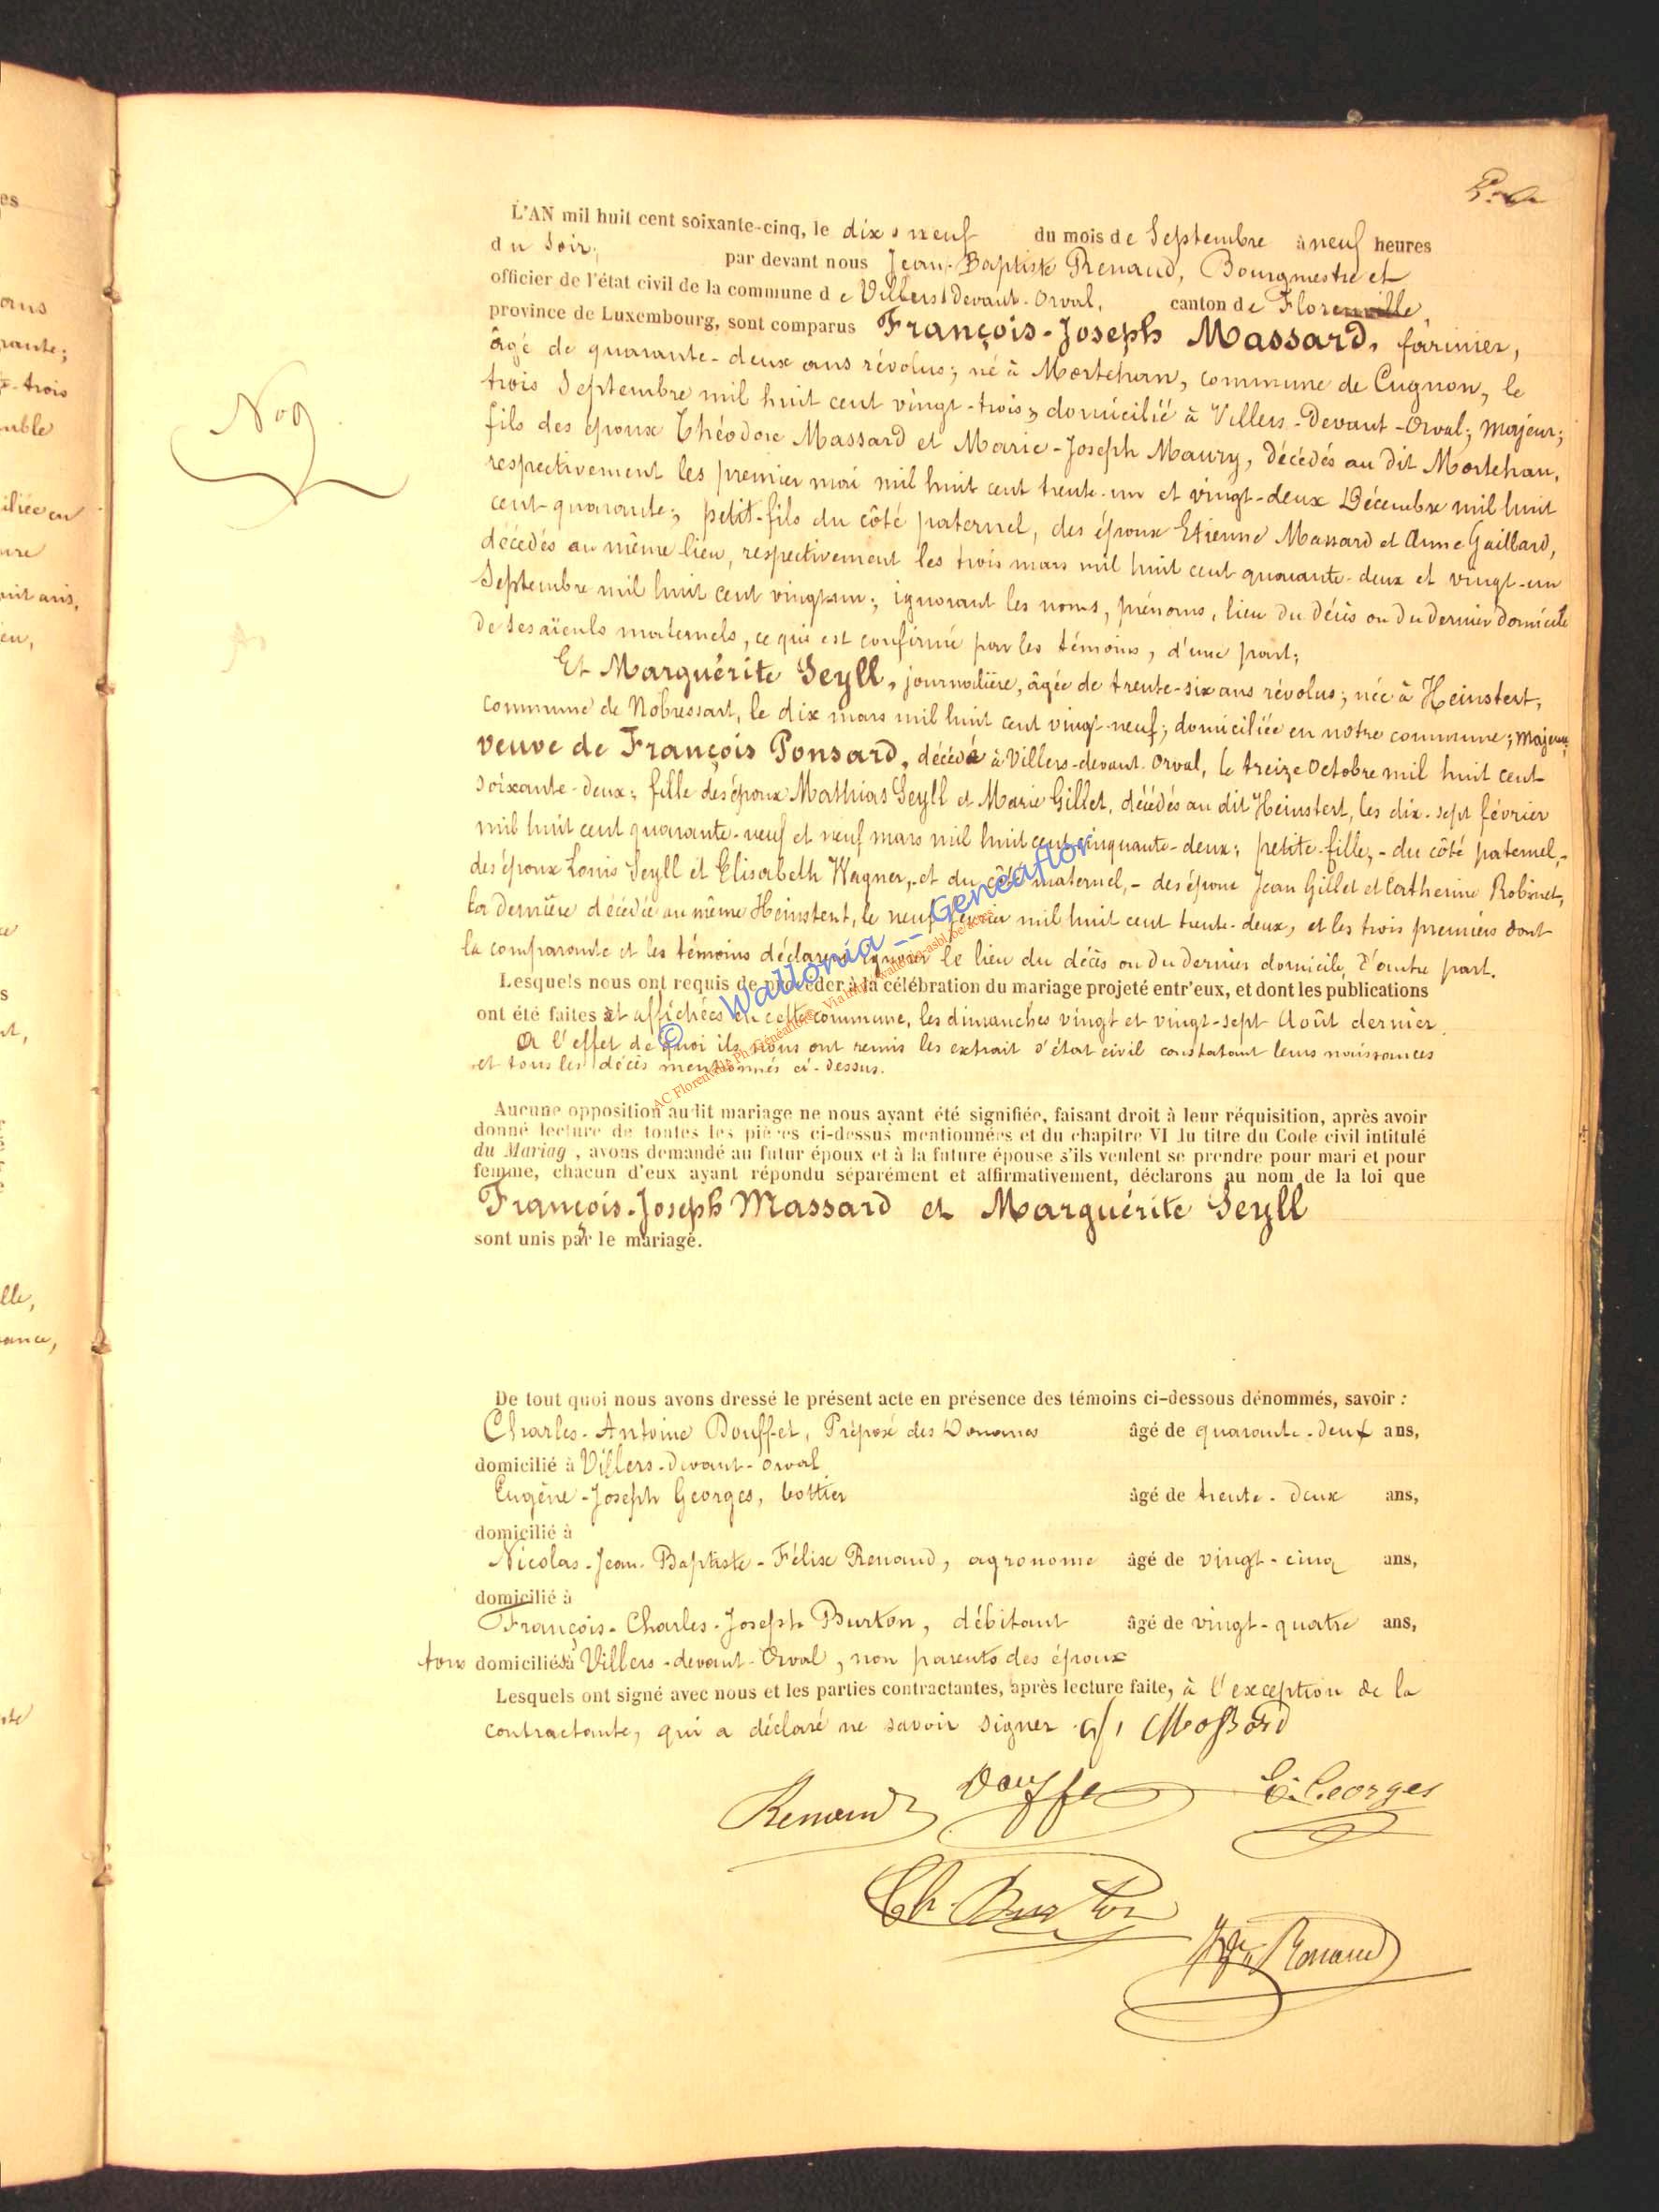 L'AN mil huit cent soixante-cinq, le dix neuf du mois de Septembre à neuf heures
du soir, par devant nous Jean-Baptiste Renaud, Bourgmestre et
officier de l'état civil de la commune de Villers devant-Orval, canton de Florenville,
province de Luxembourg, sont comparus François-Joseph Massard, farinier,
âgé de quarante-deux ans révolus; né à Mortehan, commune de Cugnon, le
trois Septembre mil huit cent vingt-trois; domicilié à Villers-Devant-Orval; majeur;
fils des époux Théodore Massard et Marie-Joseph Maury, décédés au dit Mortehan,
respectivement les premier mai mil huit cent trente-un et vingt-deux Décembre mil huit
cent-quarante; petit-fils du côté paternel, des époux Etienne Massard et Anne Gaillard,
décédés au même lieu, respectivement les trois mars mil huit cent quarante-deux et vingt-un
Septembre mil huit cent vingt-un; ignorant les noms, prénoms, lieu du décès ou du dernier domicile
de ses aïeuls maternels, ce qui est confirmé par les témoins, d'une part;
Et Marguérite Seyll, journalière, âgée de trente-six ans révolus; née à Heinstert,
commune de Nobressart, le dix mars mil huit cent vingt-neuf; domiciliée en notre commune; majeure;
veuve de François Ponsard, décédé à Villers-devant-Orval, le treize Octobre mil huit cent
soixante-deux; fille des époux Mathias Seyll et Marie Gillet, décédés au dit Heinstert, les dix-sept février
mil huit cent quarante-neuf et neuf mars mil huit cent cinquante-deux; petite-fille, - du côté paternel, -
des époux Louis Seyll et Elisabeth Wagner, - et du côté maternel, - des époux Jean Gillet et Catherine Robinet,
la dernière décédée au même Heinstert, le neuf février mil huit cent trente-deux, et les trois premiers dont
la comparante et les témoins déclarent ignorer le lieu du décès ou du dernier domicile, d'autre part.
Lesquels nous ont requis de procéder à la célébration du mariage projeté entr'eux, et dont les publications
ont été faites et affichées en cette commune, les dimanches vingt et vingt-sept Août dernier.
A l'effet de quoi ils nous ont remis les extrait d'état civil constatant leurs naissances
et tous les décès mentionnés ci-dessus.
© Wallonia -- Geneaflor
Aucune opposition audit mariage ne nous ayant été signifiée, faisant droit à leur réquisition, après avoir
donné lecture de toutes les pièces ci-dessus mentionnées et du chapitre VI du titre du Code civil intitulé
du Mariag , avons demandé au futur époux et à la future épouse s'ils veulent se prendre pour mari et pour
femme, chacun d'eux ayant répondu séparément et affirmativement, déclarons au nom de la loi que
François-Joseph Massard et Marguérite Seyll
sont unis par le mariage.
De tout quoi nous avons dressé le présent acte en présence des témoins ci-dessous dénommés, savoir :
Charles-Antoine Douffet, Préposé des Douanes âgé de quarante-deux ans,
domicilié à Villers-devant-Orval
Eugène-Joseph Georges, bottier âgé de trente-deux ans,
domicilié à
Nicolas-Jean-Baptiste-Félix Renaud, agronome âgé de vingt-cinq ans,
domicilié à
François-Charles-Joseph Burton, débitant âgé de vingt-quatre ans,
tous domiciliés à Villers-devant-Orval, non parents des époux
Lesquels ont signé avec nous et les parties contractantes, après lecture faite, à l'exception de la
contractante, qui a déclaré ne savoir signer. Massard
Renaud Douffet E. Georges
Ch. Burton
Renaud
N° 9